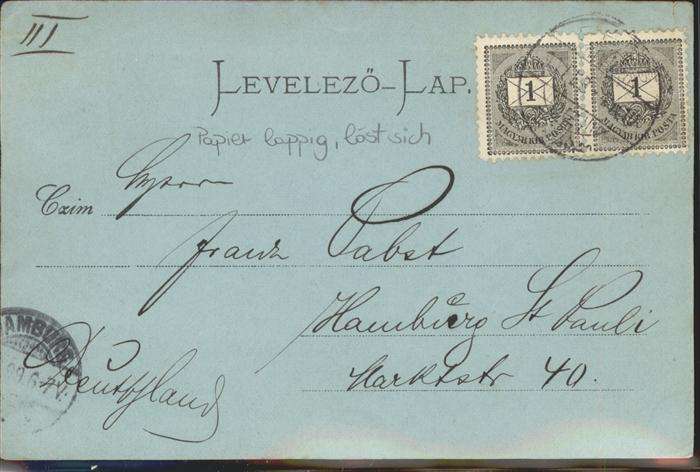 III
LEVELEZŐ-LAP.
1 MAGYAR KIR. POSTA
1 MAGYAR KIR. POSTA
Papier lappig, löst sich
Herrn
Czim
Franz Pabst
Hamburg St Pauli
Marktstr 40.
Deutschland
HAMBURG